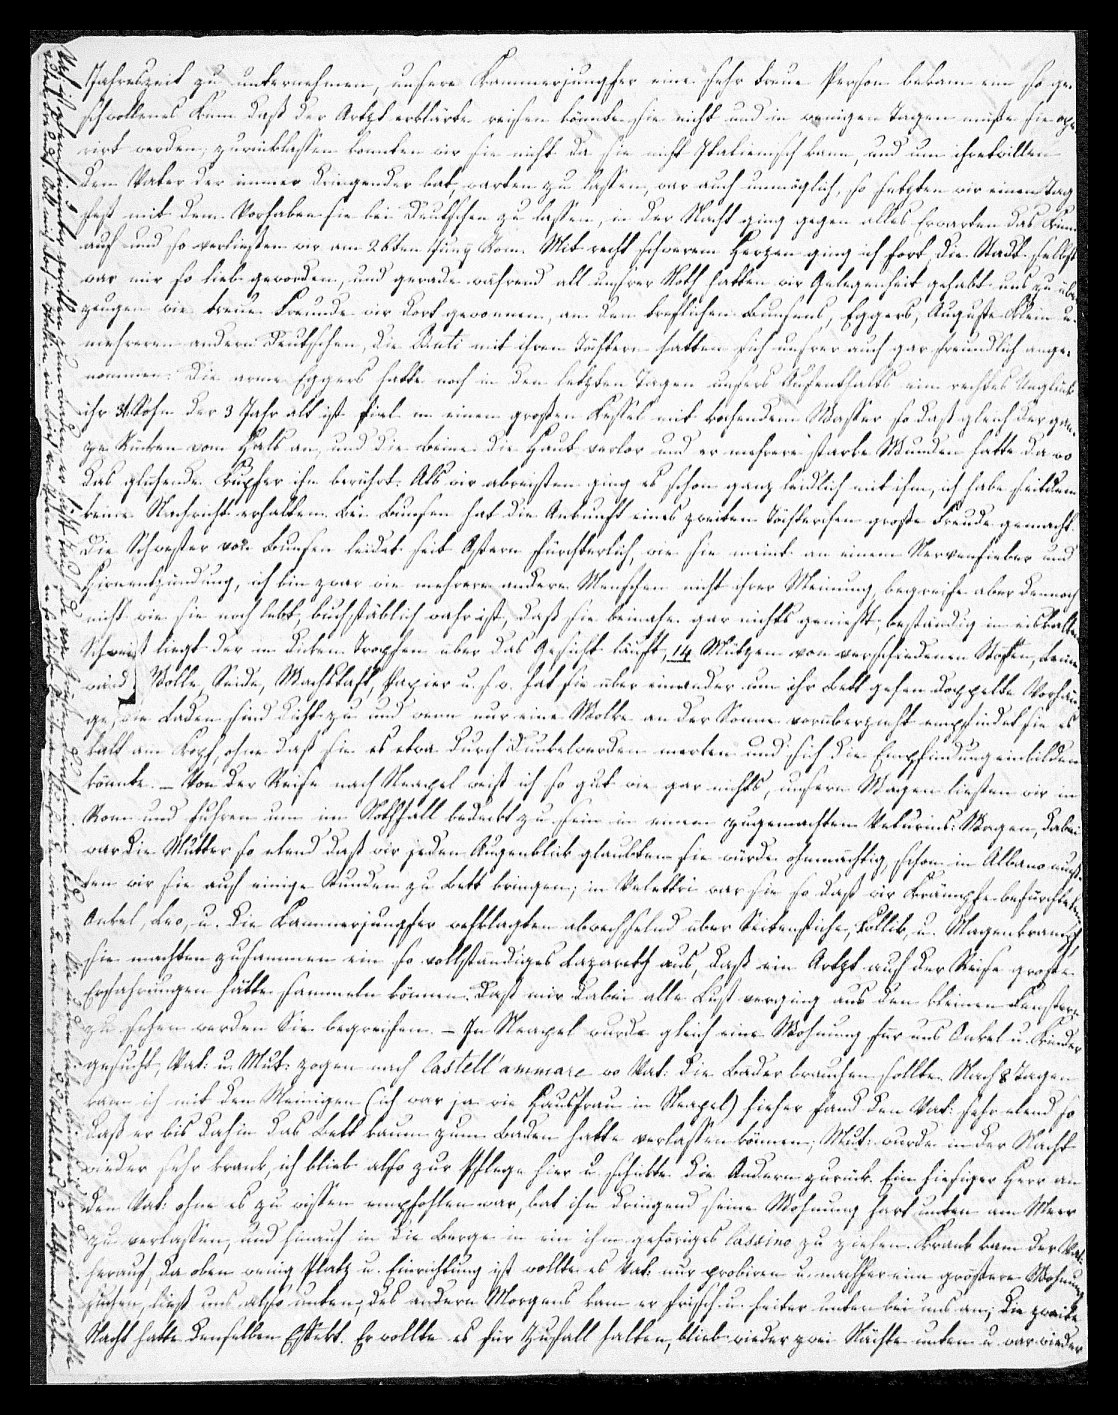 Jahreszeit zu unternehmen, unsere Kammerjungfer eine sehr treue Person bekam ein so ge-
schwollenes Knie daß der Artzt erklärte reisen könnte sie nicht und in wenigen Tagen müßte sie ope-
rirt werden, zurücklassen konnten wir sie nicht da sie nicht Italienisch kann, und um ihretwillen
den Vater der immer dringender bat, warten zu lassen, war auch unmöglich, so setzten wir einen Tag
fest mit dem Vorhaben sie bei Deutschen zu lassen, in der Nacht ging gegen alles Erwarten das Knie
auf und so verließen wir am 26ten Juny Rom. Mit recht schwerem Herzen ging ich fort die Stadt selbst
war mir so lieb geworden, und gerade während all unsrer Noth hatten wir Gelegenheit gehabt uns zu über-
zeugen wie treue Freunde wir dort gewonnen, an den trefflichen Bunsens, Eggers, Auguste Klein u.
mehreren andern Deutschen, die Buti mit ihren Töchtern hatten sich unsrer auch gar freundlich ange-
nommen. Die arme Eggers hatte noch in den letzten Tagen unsers Aufenthalts ein rechtes Unglück
ihr Sohn der 3 Jahr alt ist fiel in einen großen Kessel mit kochendem Wasser so daß gleich der gan-
ze Rücken vom Hals an, und die Beine die Haut verlor und er mehrere starke Wunden hatte da wo
das glühende Kupfer ihn berührt. Als wir abreisten ging es schon ganz leidlich mit ihm, ich habe seitdem
keine Nachricht erhalten. Bei Bunsen hat die Ankunft eines zweiten Töchterchen große Freude gemacht.
Die Schwester von Bunsen leidet seit Ostern fürchterlich, wie sie meint an einem Nervenfieber und
Hirnentzündung, ich bin zwar wie mehrere andere Menschen nicht ihrer Meinung, begreife aber dennoch
nicht wie sie noch lebt, buchstäblich wahr ist, daß sie beinahe gar nichts genießt, beständig in eiskalten
Schweiß liegt der in dicken Tropfen über das Gesicht läuft, 14 Mützen von verschiedenen Stoffen, Leine-
wand, Wolle, Seide, Wachstaft, Papier u. s. w. hat sie über einander um ihr Bett gehen doppelte Vorhän-
ge, die Laden sind dicht zu und wenn nur eine Wolke an der Sonne vorüberzieht empfindet sie es
kalt am Kopf, ohne daß sie es etwa durch Dunkelwerden merken und sich die Empfindung einbilden
könnte. – Von der Reise nach Neapel weiß ich so gut wie gar nichts, unsern Wagen ließen wir in
Rom und fuhren um im Nothfall bedeckt zu sein in einem zugemachten Veturins-Wagen, dabei
war die Mutter so elend daß wir jeden Augenblick glaubten sie würde ohnmächtig, schon in Albano muß-
ten wir sie auf einige Stunden zu Bett bringen, in Veletri war sie so daß wir Krämpfe befürchteten
Onkel, Leo, u. die Kammerjungfer wehklagten abwechselnd über Seitenstiche, Collik, u. Magenkrampf,
sie machten zusammen ein so vollständiges Lazareth aus, daß ein Artzt auf der Reise große
Erfahrungen hätte sammeln können. Daß mir dabei alle Lust verging aus den kleinen Fenstern
zu sehen werden Sie begreifen. – In Neapel wurde gleich eine Wohnung für uns Onkel u. Kinder
gesucht, Vat: u. Mut: zogen nach Castell' ammare wo Vat: die Bäder brauchen sollte. Nach 8 Tagen
kam ich mit den Meinigen (ich war ja wie Hausfrau in Neapel) hieher fand den Vat: sehr elend so
daß er bis dahin das Bett kaum zum Baden hatte verlassen können, Mut: wurde in der Nacht
wieder sehr krank, ich blieb also zur Pflege hier u. schickte die Andern zurück. Ein hiesiger Herr an
den Vat: ohne es zu wissen empfohlen war, bat ihn dringend seine Wohnung hart unten am Meer
zu verlassen, und hinauf in die Berge in ein ihm gehöriges Cassino zu ziehen. Krank kam der Vat:
herauf, da oben wenig Platz u. Einrichtung ist wollte es Vat: nur probiren u. nachher eine größere Wohnung
suchen, ließ uns also unten, des andern Morgens kam er frisch u. heiter unten bei uns an, die zweite
Nacht hatte denselben Effekt. Er wollte es für Zufall halten, blieb wieder zwei Nächte unten u. war wieder